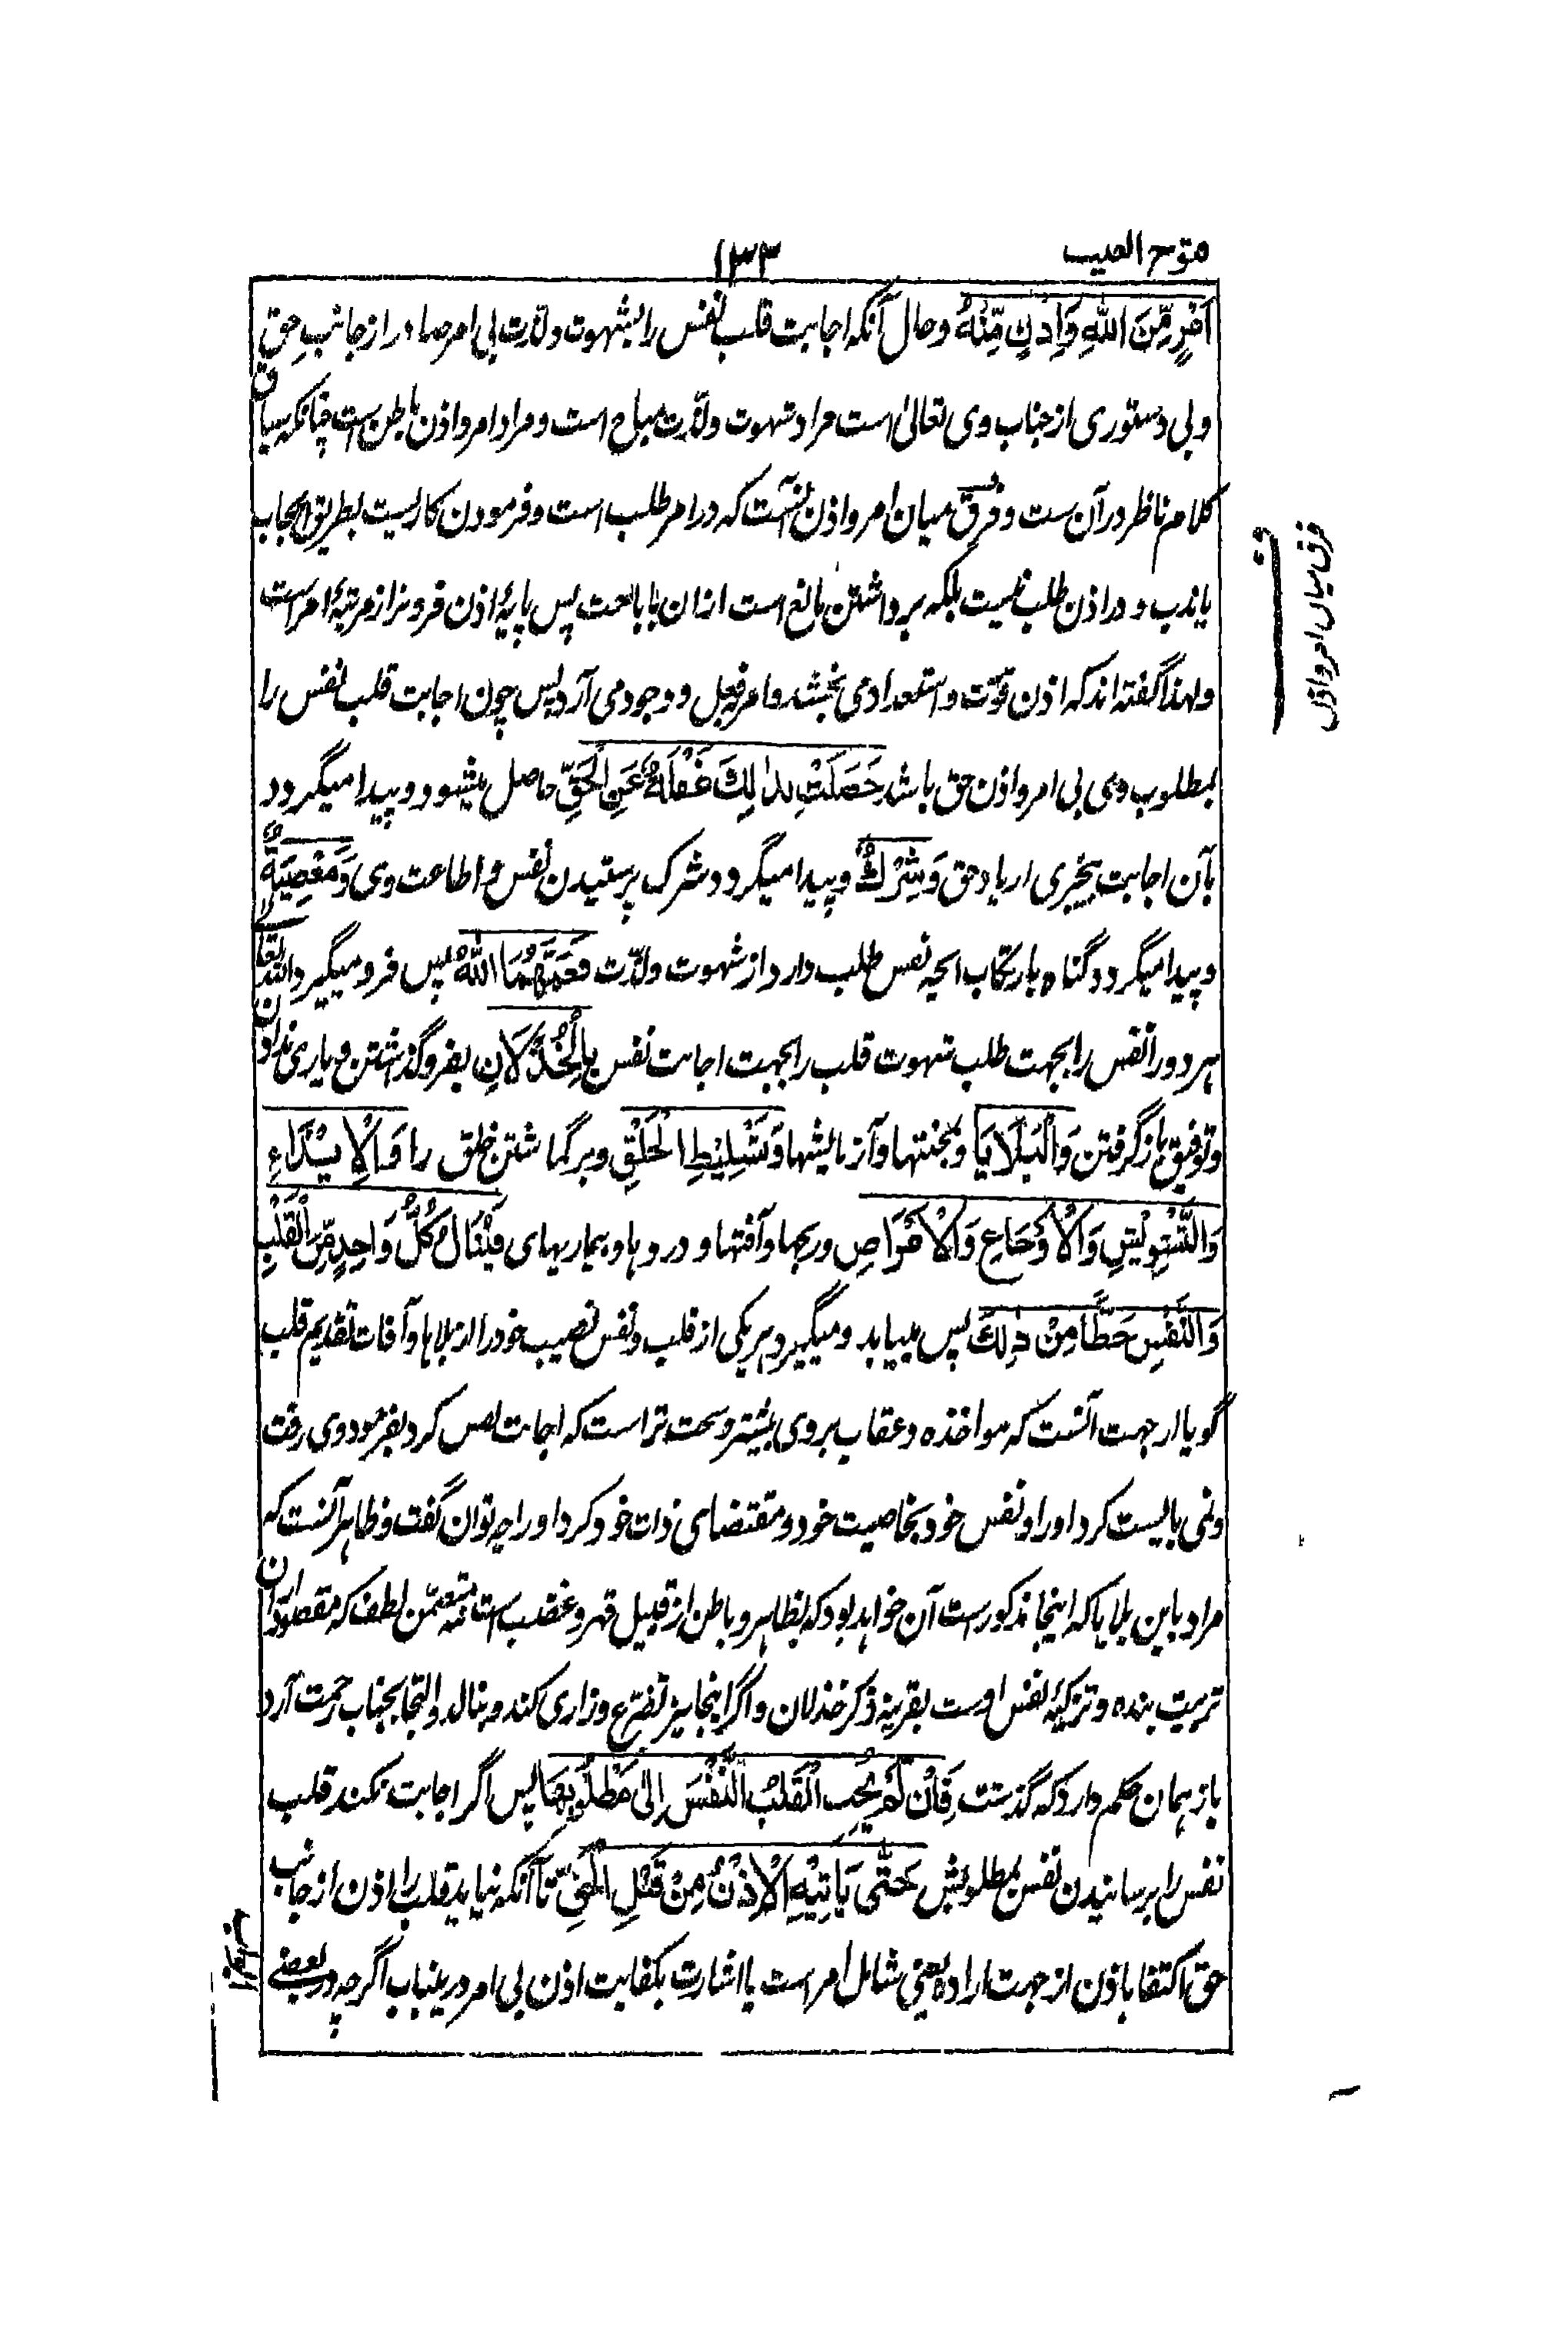 فتوح الغیب
۱۳۳
اَمْرٍ مِّنَ اللّٰهِ وَاِذْنٍ مِّنْهُ وحال آنکه اجابت قلب نفس را بشهوت ولذّت بی امر صادر از جانب حق
و بی دستوری از جناب وی تعالیٰ ست مراد شهوت ولذّت مباح است و مراد امر و اذن باطن است چنانکه سیاق
کلام ناظر در آن ست وفرق میان امر و اذن آنست که در امر طلب است و فرمودن کاریست بطریق ایجاب
یا ندب و در اذن طلب نیست بلکه برداشتن مانع است ازان باباحت پس پایۀ اذن فروتر از مرتبۀ امر است
ولهذا گفته اند که اذن قوّت واستعداد می بخشد و امر فعل و وجود می آرد پس چون اجابت قلب نفس را
بمطلوب وی بی امر و اذن حق باشد حَصَلَتْ بِذٰلِكَ غَفْلَةٌ عَنِ الْحَقِّ حاصل میشود و پیدا میگردد
بآن اجابت بیخبری از یاد حق وَشِرْكٌ و پیدا میگردد شرک پرستیدن نفس و اطاعت وی وَمَعْصِيَةٌ
و پیدا میگردد گناه بارتکاب آنچه نفس طلب دارد از شهوت ولذّت فَعَمَّهُمَا اللّٰهُ پس فرو میگیرد الله تعالی
هر دو را نفس را بجهت طلب شهوت قلب را بجهت اجابت نفس بِالْخُذْلَانِ بفرو گذاشتن و یاری ندادن
و توفیق باز گرفتن وَالْبَلَايَا و بمحنتها و آزمایشها وَتَسْلِيْطِ الْخَلْقِ و برگماشتن خلق را وَالْاِيْذَاءِ
وَالتَّشْوِيْشِ وَالْاَوْجَاعِ وَالْاَمْرَاضِ ورنجها و آفتها و دردها و بیماریهای فَيَنَالُ كُلُّ وَاحِدٍ مِّنَ الْقَلْبِ
وَالنَّفْسِ حَظًّا مِنْ ذٰلِكَ پس مییابد و میگیرد هر یکی از قلب و نفس نصیب خود را از بلاها و آفات تقدیم قلب
گویا از جهت آنست که مواخذه و عقاب بر وی بیشتر و سخت تر است که اجابت نفس کرد بفرمود وی رفت
ونمی بایست کرد او را و نفس خود بخاصیت خود و مقتضای ذات خود کرد او را چه توان گفت و ظاهر آنست که
مراد باین بلایا که اینجا مذکور ست آن خواهد بود که بظاهر و باطن از قبیل قهر و غضب ست نه متضمّن لطف که مقصود ازان
تربیت بنده و تزکیۀ نفس اوست بقرینۀ ذکر خذلان و اگر اینجا نیز تضرّع و زاری کند و بنالد و التجا بجناب رحمت آرد
باز همان حکم دارد که گذشت فَاِنْ لَمْ يُجِبِ الْقَلْبُ النَّفْسَ اِلٰى مَطْلُوْبِهَا پس اگر اجابت نکند قلب
نفس را برسانیدن نفس بمطلوبش حَتّٰى يَاْتِيَهِ الْاِذْنُ مِنْ قِبَلِ الْحَقِّ تا آنکه نیاید قلب را اذن از جانب
حق اکتفا باذن از جهت اراده یعنی شامل امر است یا اشارت بکفایت اذن بی امر درینباب اگرچه در بعضی
فرق میان امر و اذن